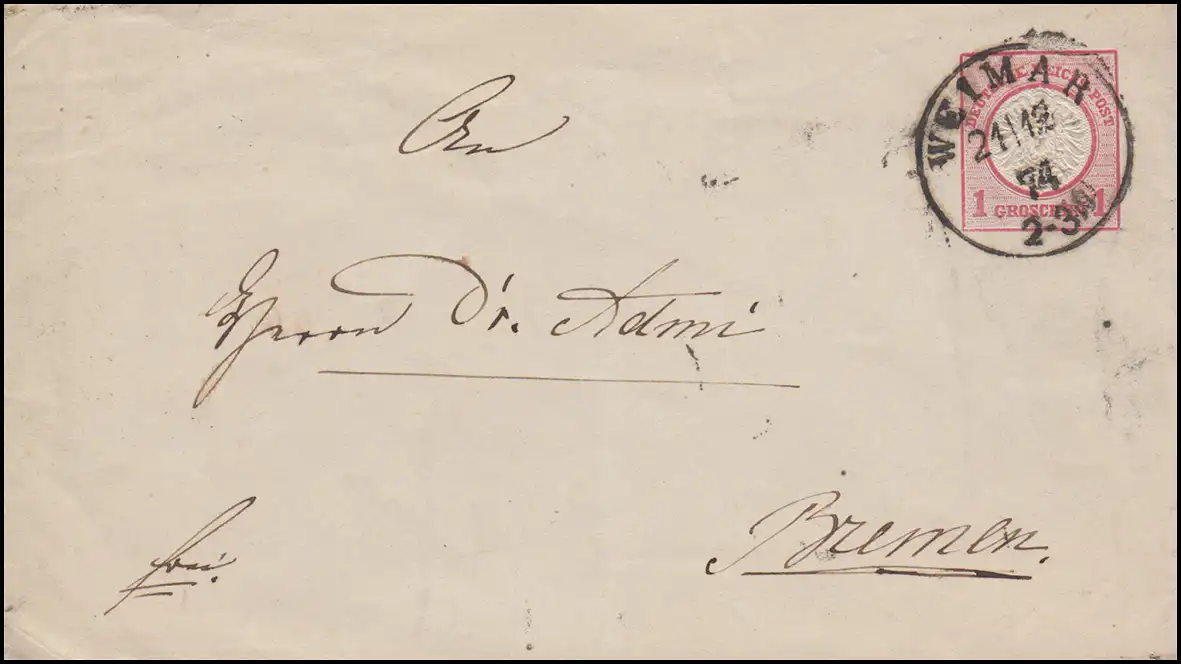 DEUTSCHE REICHS POST
1 GROSCHEN 1
WEIMAR
21 12
74
2-3N
An
Herrn Dr. Admi
Bremen.
frei.